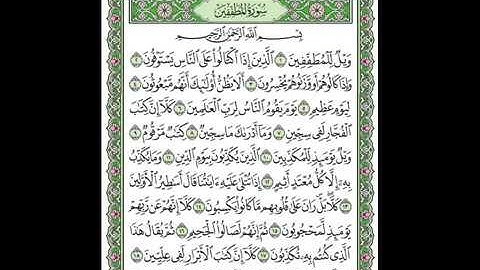 سُورَةُ المُطَفِّفِينَ
بِسْمِ ٱللَّهِ ٱلرَّحْمَٰنِ ٱلرَّحِيمِ
وَيْلٌ لِّلْمُطَفِّفِينَ ١ ٱلَّذِينَ إِذَا ٱكْتَالُوا۟ عَلَى ٱلنَّاسِ يَسْتَوْفُونَ ٢
وَإِذَا كَالُوهُمْ أَو وَّزَنُوهُمْ يُخْسِرُونَ ٣ أَلَا يَظُنُّ أُو۟لَٰٓئِكَ أَنَّهُم مَّبْعُوثُونَ ٤
لِيَوْمٍ عَظِيمٍ ٥ يَوْمَ يَقُومُ ٱلنَّاسُ لِرَبِّ ٱلْعَٰلَمِينَ ٦ كَلَّآ إِنَّ كِتَٰبَ
ٱلْفُجَّارِ لَفِى سِجِّينٍ ٧ وَمَآ أَدْرَىٰكَ مَا سِجِّينٌ ٨ كِتَٰبٌ مَّرْقُومٌ ٩
وَيْلٌ يَوْمَئِذٍ لِّلْمُكَذِّبِينَ ١٠ ٱلَّذِينَ يُكَذِّبُونَ بِيَوْمِ ٱلدِّينِ ١١ وَمَا يُكَذِّبُ
بِهِۦٓ إِلَّا كُلُّ مُعْتَدٍ أَثِيمٍ ١٢ إِذَا تُتْلَىٰ عَلَيْهِ ءَايَٰتُنَا قَالَ أَسَٰطِيرُ ٱلْأَوَّلِينَ
١٣ كَلَّا بَلْ رَانَ عَلَىٰ قُلُوبِهِم مَّا كَانُوا۟ يَكْسِبُونَ ١٤ كَلَّآ إِنَّهُمْ عَن رَّبِّهِمْ
يَوْمَئِذٍ لَّمَحْجُوبُونَ ١٥ ثُمَّ إِنَّهُمْ لَصَالُوا۟ ٱلْجَحِيمِ ١٦ ثُمَّ يُقَالُ هَٰذَا
ٱلَّذِى كُنتُم بِهِۦ تُكَذِّبُونَ ١٧ كَلَّآ إِنَّ كِتَٰبَ ٱلْأَبْرَارِ لَفِى عِلِّيِّينَ ١٨